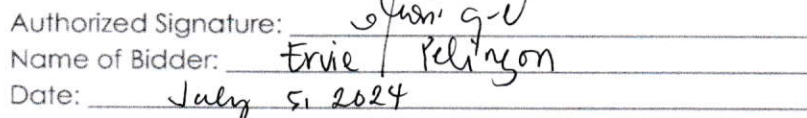 Authorized Signature:
Name of Bidder: Ervie Pelingon
Date: July 5, 2024